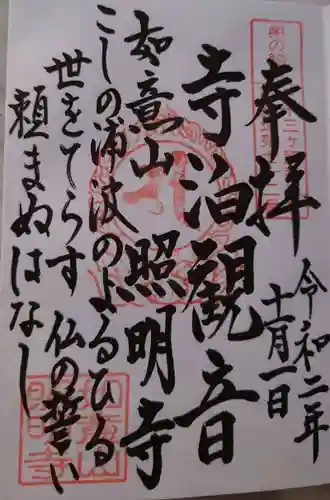 奉拝
令和二年
十一月一日
寺泊観音
如意山 照明寺
こしの浦波のよるひる
世をてらす 仏の誓い
頼まぬはなし